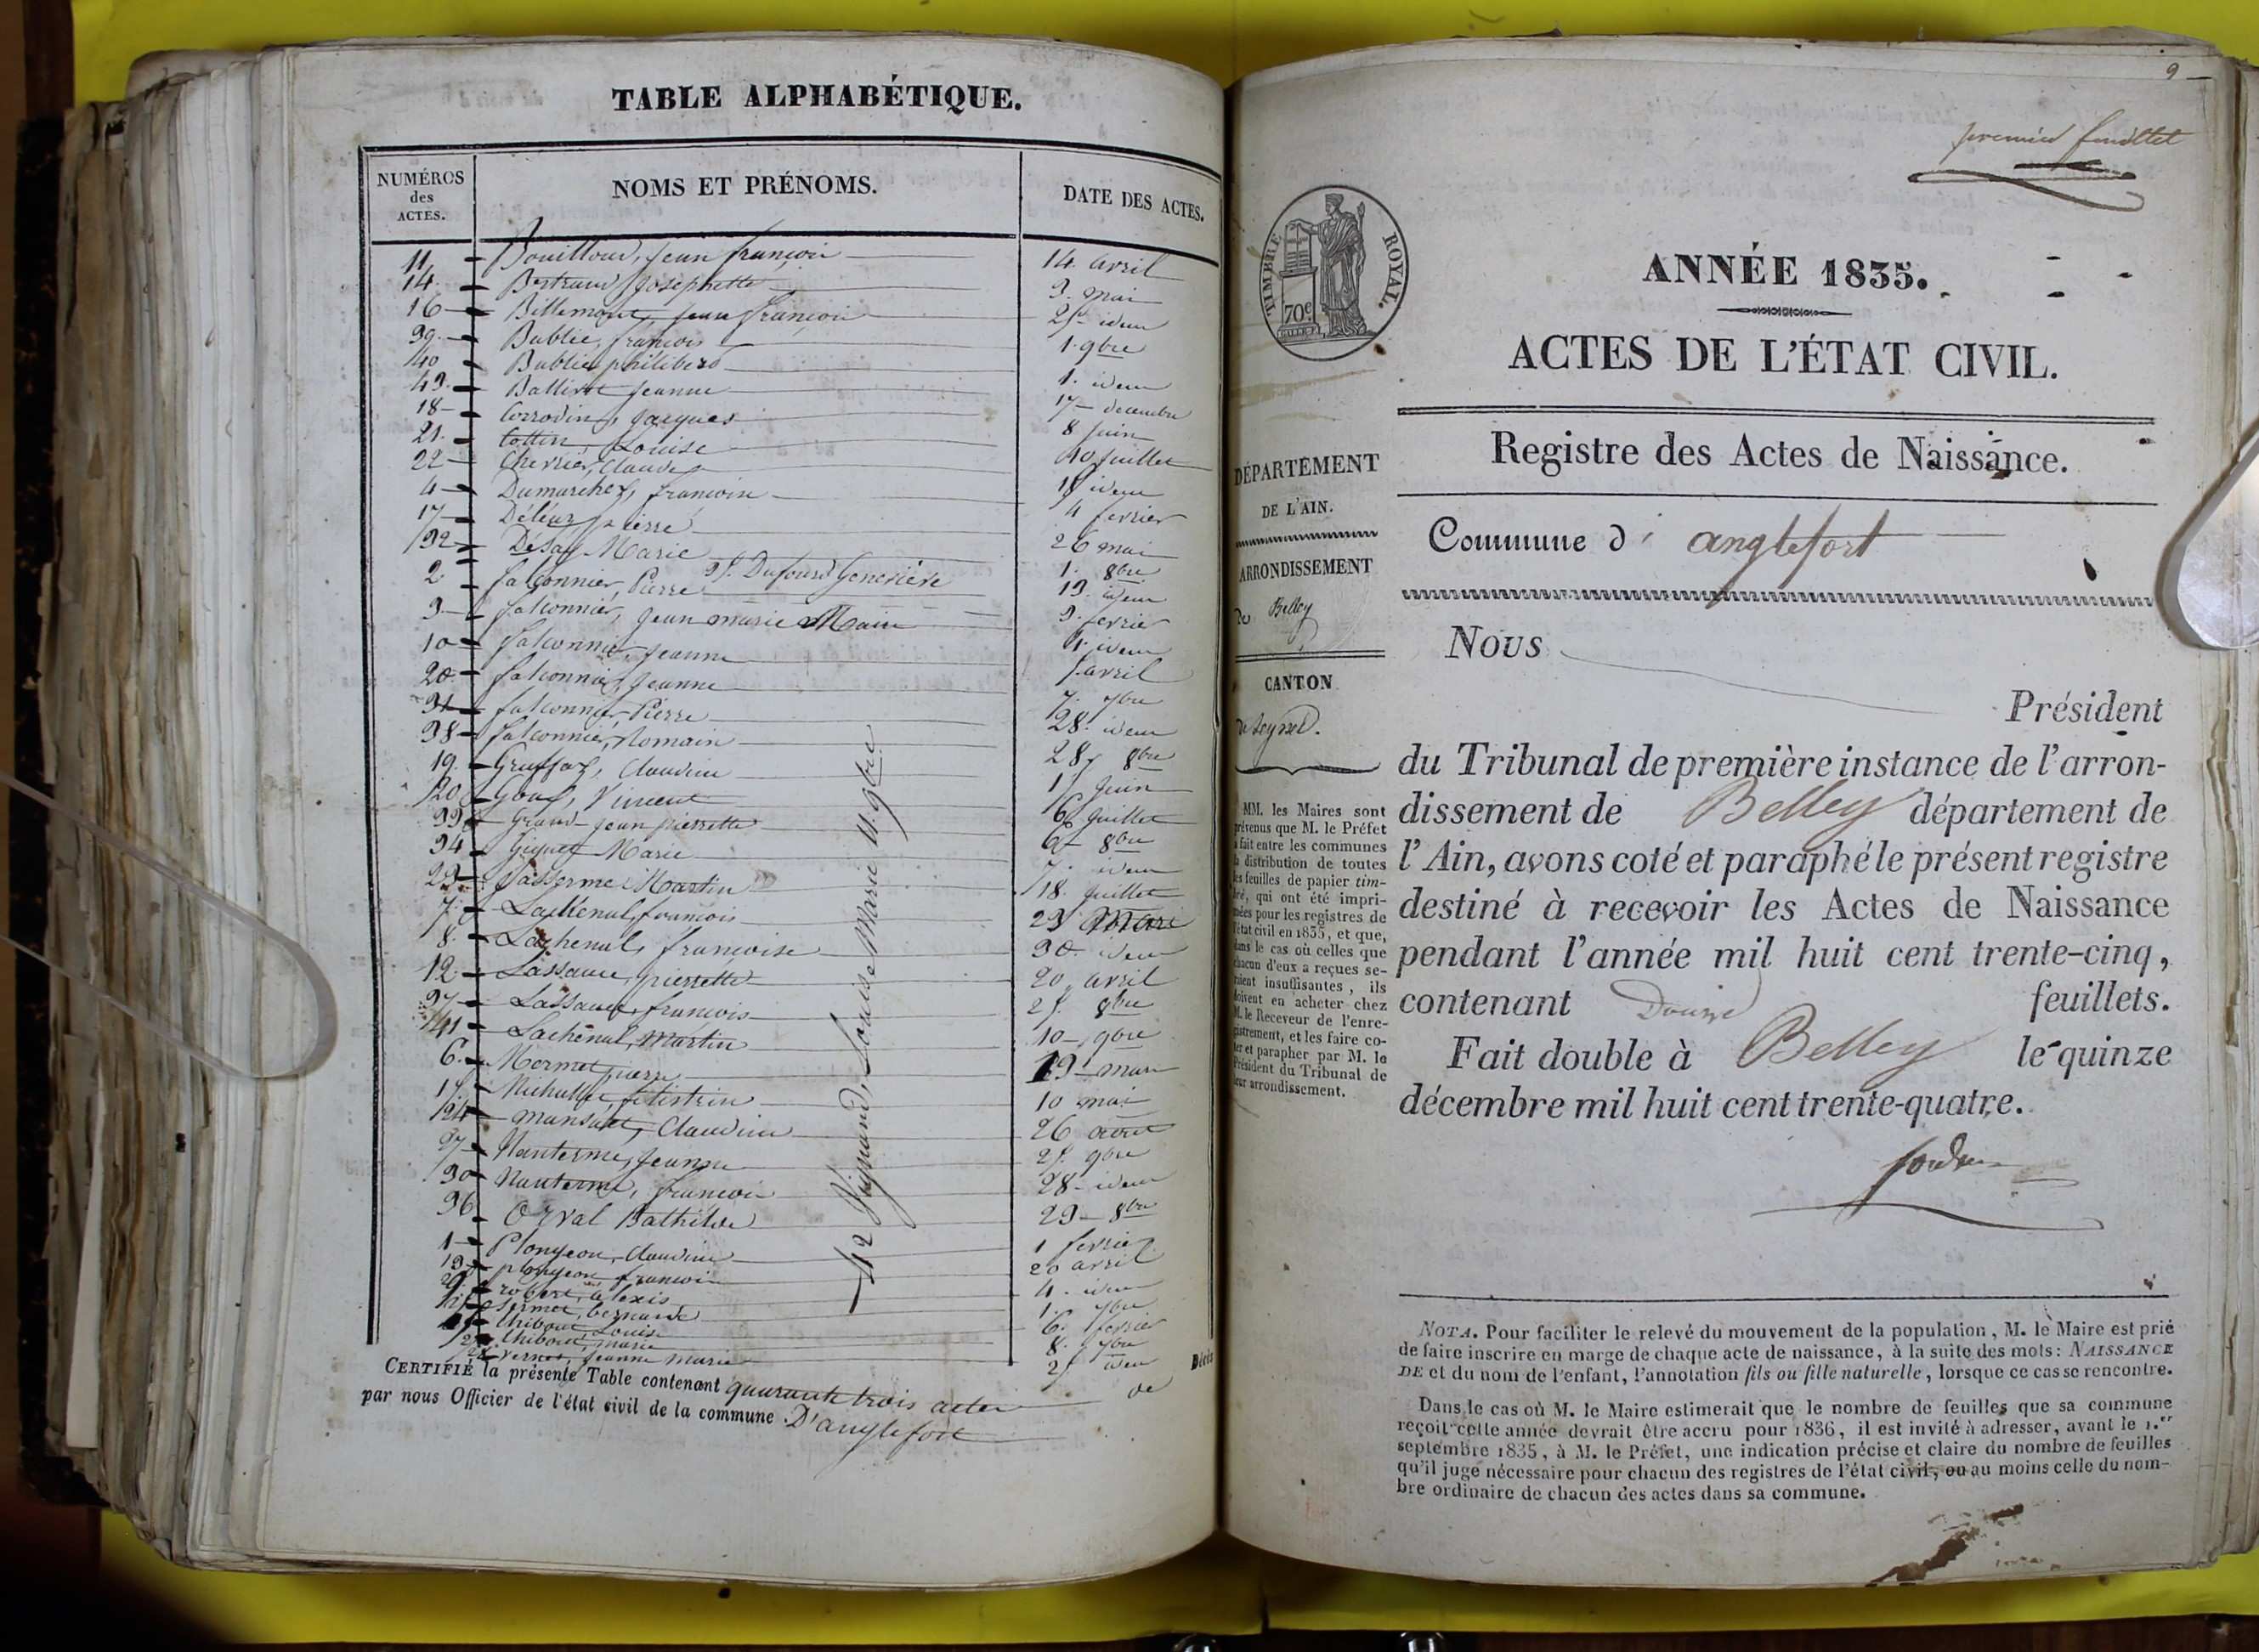 TABLE ALPHABÉTIQUE.
NUMÉROS des ACTES.
NOMS ET PRÉNOMS.
DATE DES ACTES.
11 Bouilloud, jean françois 14. avril
14. Bertrand Josephette 3. mai
16 Billemont, jean françois 25 idem
39. Bublie, françois 1. 9bre
40 Bublie philibert 1. idem
43. Ballivet jeanne 17 decembre
18 Corrodin, jacques 8 juin
21. Cottin Louise 10 juillet
22 Chevrier, Claude 15 idem
4 Dumarchez, françoise 4 fevrier
17 Déléaz pierre 26 mai
32 Désay Marie 1. 8bre
35. Dufourd Geneviève 13. idem
2. falconnier, Pierre 3. fevrier
3 falconnier, jean marie
10 falconnier, jeanne avril
falconnier, jeanne 7. 7bre
31 falconnier Pierre 28. idem
38 falconnier, Romain 28 8bre
19. Claudine juin
20 Vincent 6 juillet
33 Grand jean pierrette 6 8bre
34 Marie 7. idem
23 Martin 18. juillet
7. Lachenal, françois
8. Lachenal, françoise 30. idem
12 Lassauce, pierrette 20 avril
37 Lassauce, françois 25. 8bre
41 Lachenal, Martin 10 9bre
6. Mermet pierre 19 mars
15. 10 mai
24 Claudine 26 aout
Nanterme, jeanne
30 Nanterme, françois 28 idem
36 Orval Bathilde 29 8bre
1 Plongeon, Claudine 1 fevrier
13 plongeon françois 20 avril
robert, alexis 4. idem
Sermet, bernard 1. 7bre
Thiboud, Louise 6. fevrier
Thiboud, marie 8. 7bre
Vernet, jeanne marie 25 idem
42 Louise Marie 11. 9bre
CERTIFIÉ la présente Table contenant quarante trois actes
par nous Officier de l'état civil de la commune D'anglefort
9
premier feuillet
TIMBRE ROYAL.
70c
ANNÉE 1835.
ACTES DE L'ÉTAT CIVIL.
Registre des Actes de Naissance.
Commune d' anglefort
DÉPARTEMENT
DE L'AIN.
ARRONDISSEMENT
de Belley
CANTON
de Seyssel.
MM. les Maires sont
prévenus que M. le Préfet
a fait entre les communes
la distribution de toutes
les feuilles de papier tim-
bré, qui ont été impri-
mées pour les registres de
l'état civil en 1835, et que,
dans le cas où celles que
chacun d'eux a reçues se-
raient insuffisantes, ils
doivent en acheter chez
M. le Receveur de l'enre-
gistrement, et les faire co-
ter et parapher par M. le
Président du Tribunal de
leur arrondissement.
Nous
Président
du Tribunal de première instance de l'arron-
dissement de Belley département de
l'Ain, avons coté et paraphé le présent registre
destiné à recevoir les Actes de Naissance
pendant l'année mil huit cent trente-cinq,
contenant Douze feuillets.
Fait double à Belley le quinze
décembre mil huit cent trente-quatre.
NOTA. Pour faciliter le relevé du mouvement de la population, M. le Maire est prié
de faire inscrire en marge de chaque acte de naissance, à la suite des mots: NAISSANCE
DE et du nom de l'enfant, l'annotation fils ou fille naturelle, lorsque ce cas se rencontre.
Dans le cas où M. le Maire estimerait que le nombre de feuilles que sa commune
reçoit cette année devrait être accru pour 1836, il est invité à adresser, avant le 1.er
septembre 1835, à M. le Préfet, une indication précise et claire du nombre de feuilles
qu'il juge nécessaire pour chacun des registres de l'état civil, ou au moins celle du nom-
bre ordinaire de chacun des actes dans sa commune.